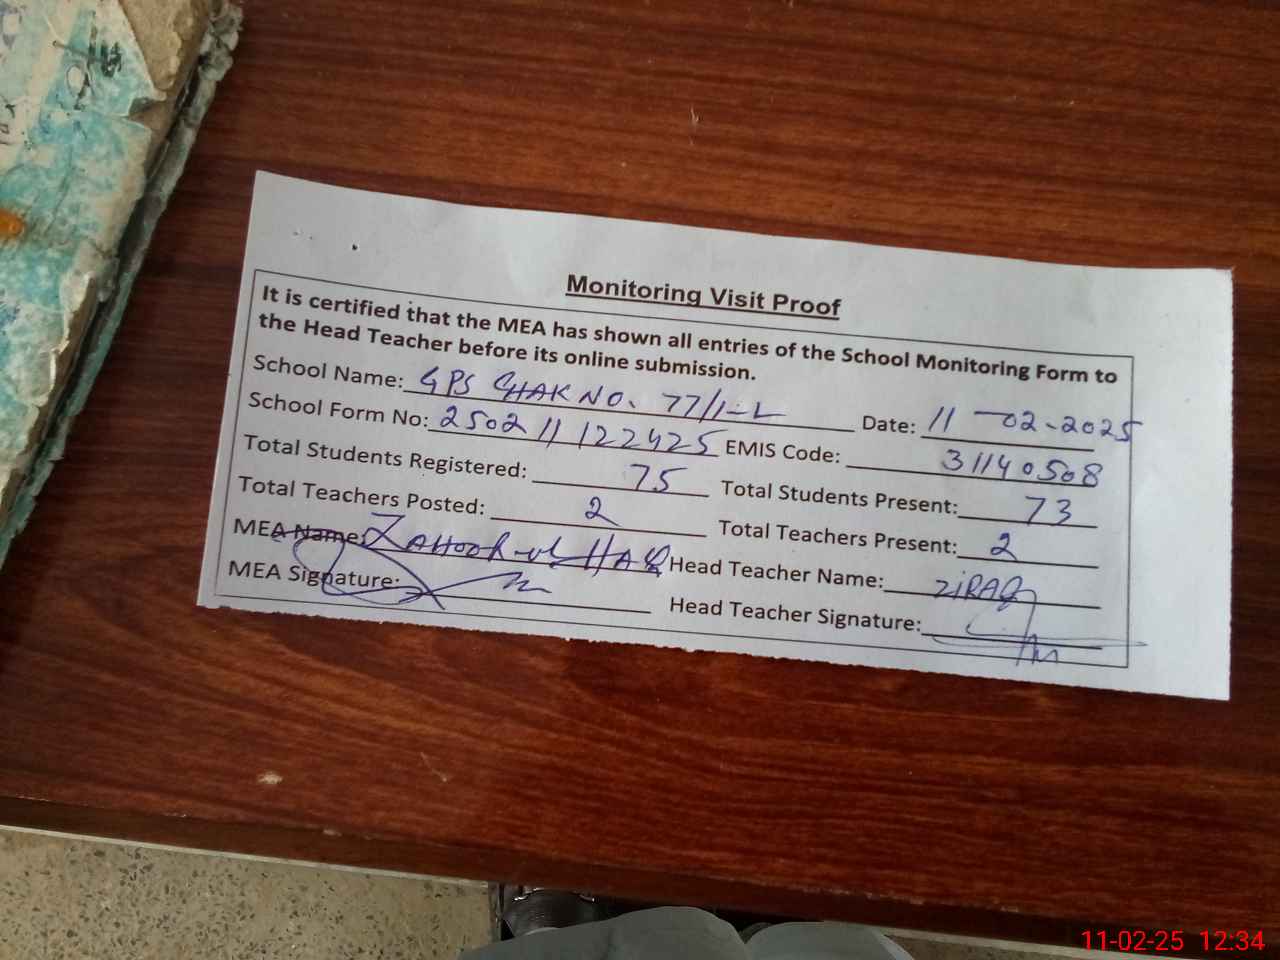 Monitoring Visit Proof
It is certified that the MEA has shown all entries of the School Monitoring Form to
the Head Teacher before its online submission.
School Name: GPS CHAK NO. 77/1-L Date: 11-02-2025
School Form No: 250211122425 EMIS Code: 31140508
Total Students Registered: 75 Total Students Present: 73
Total Teachers Posted: 2 Total Teachers Present: 2
MEA Name: ZAHOOR-ul-HAQ Head Teacher Name: ZIRAQ
MEA Signature: Head Teacher Signature:
11-02-25 12:34